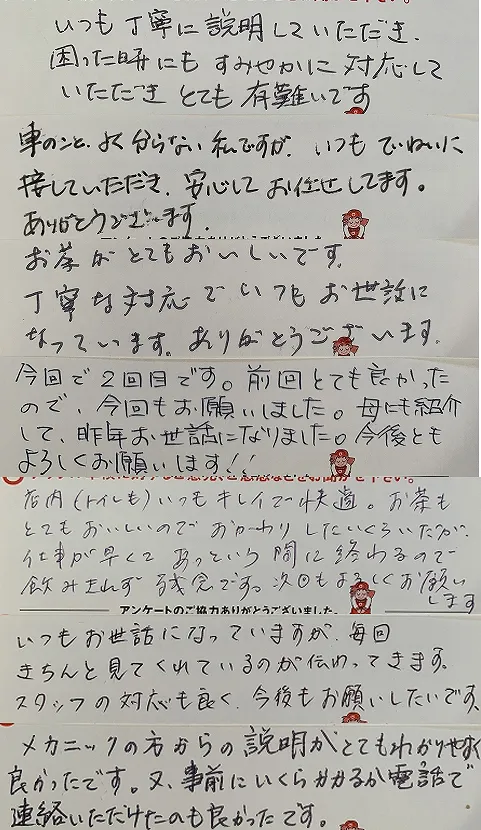 いつも丁寧に説明していただき、
困った時にもすみやかに対応して
いただきとても有難いです
車のこと、よく分らない私ですが、いつもていねいに
接していただき、安心してお任せしてます。
ありがとうございます。
お茶がとてもおいしいです。
丁寧な対応でいつもお世話に
なっています。ありがとうございます。
今回で2回目です。前回とても良かった
ので、今回もお願いしました。母にも紹介
して、昨年お世話になりました。今後とも
よろしくお願いします!!
店内(トイレも)いつもキレイで快適。お茶も
とてもおいしいのでおかわりしたいくらいだが、
仕事が早くてあっという間に終わるので
飲みきれず残念です。次回もよろしくお願い
します
アンケートのご協力ありがとうございました。
いつもお世話になっていますが、毎回
きちんと見てくれているのが伝わってきます。
スタッフの対応も良く、今後もお願いしたいです
メカニックの方からの説明がとてもわかりやすく
良かったです。又、事前にいくらかかるか電話で
連絡いただけたのも良かったです。